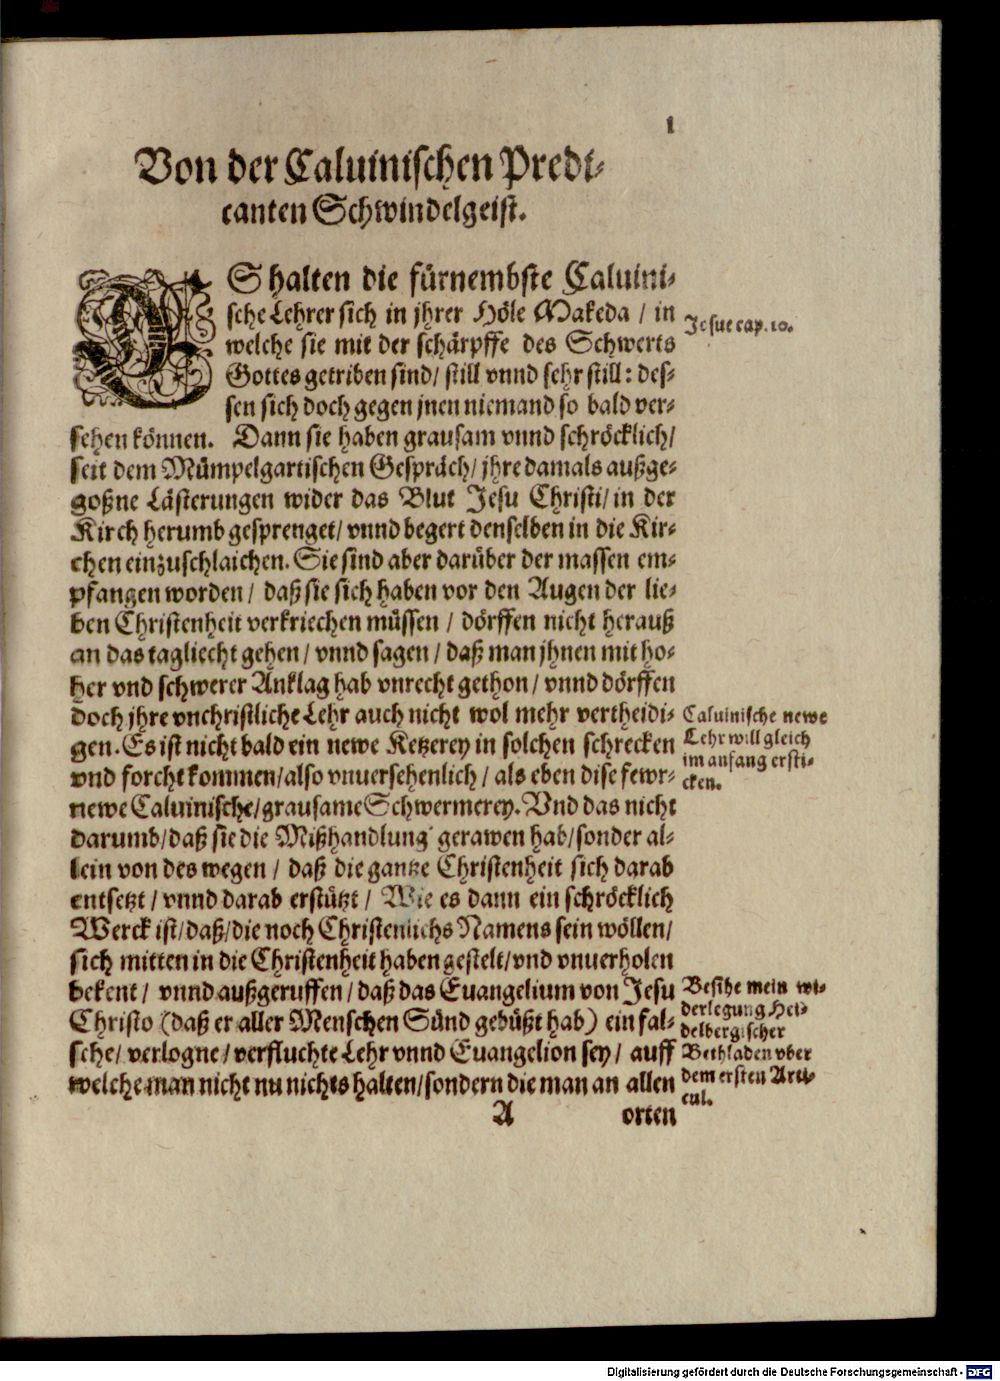 1
Von der Caluinischen Predi-
canten Schwindelgeist.
ES halten die fürnembste Caluini-
sche Lehrer sich in jhrer Höle Makeda / in
welche sie mit der schärpffe des Schwerts
Gottes getriben sind / still vnnd sehr still: des-
sen sich doch gegen jnen niemand so bald ver-
sehen können. Dann sie haben grausam vnnd schröcklich /
seit dem Mümpelgartischen Gespräch / jhre damals außge-
goßne Lästerungen wider das Blut Jesu Christi / in der
Kirch herumb gesprenget / vnnd begert denselben in die Kir-
chen einzuschlaichen. Sie sind aber darüber der massen em-
pfangen worden / daß sie sich haben vor den Augen der lie-
ben Christenheit verkriechen müssen / dörffen nicht herauß
an das tagliecht gehen / vnnd sagen / daß man jhnen mit ho-
her vnd schwerer Anklag hab vnrecht gethon / vnnd dörffen
doch jhre vnchristliche Lehr auch nicht wol mehr vertheidi-
gen. Es ist nicht bald ein newe Ketzerey in solchen schrecken
vnd forcht kommen / also vnuersehenlich / als eben dise fewr-
newe Caluinische / grausame Schwermerey. Vnd das nicht
darumb / daß sie die Mißhandlung gerawen hab / sonder al-
lein von des wegen / daß die gantze Christenheit sich darab
entsetzt / vnnd darab erstützt / Wie es dann ein schröcklich
Werck ist / daß / die noch Christenlichs Namens sein wöllen /
sich mitten in die Christenheit haben gestelt / vnd vnuerholen
bekent / vnnd außgeruffen / daß das Euangelium von Jesu
Christo (daß er aller Menschen Sünd gebüßt hab) ein fal-
sche / verlogne / verfluchte Lehr vnnd Euangelion sey / auff
welche man nicht nu nichts halten / sondern die man an allen
A orten
Jesue cap. 10.
Caluinische newe
Lehr will gleich
im anfang ersti-
cken.
Besihe mein wi-
derlegung Hei-
delbergischer
Bethladen vber
dem ersten Arti-
cul.
Digitalisierung gefördert durch die Deutsche Forschungsgemeinschaft - DFG